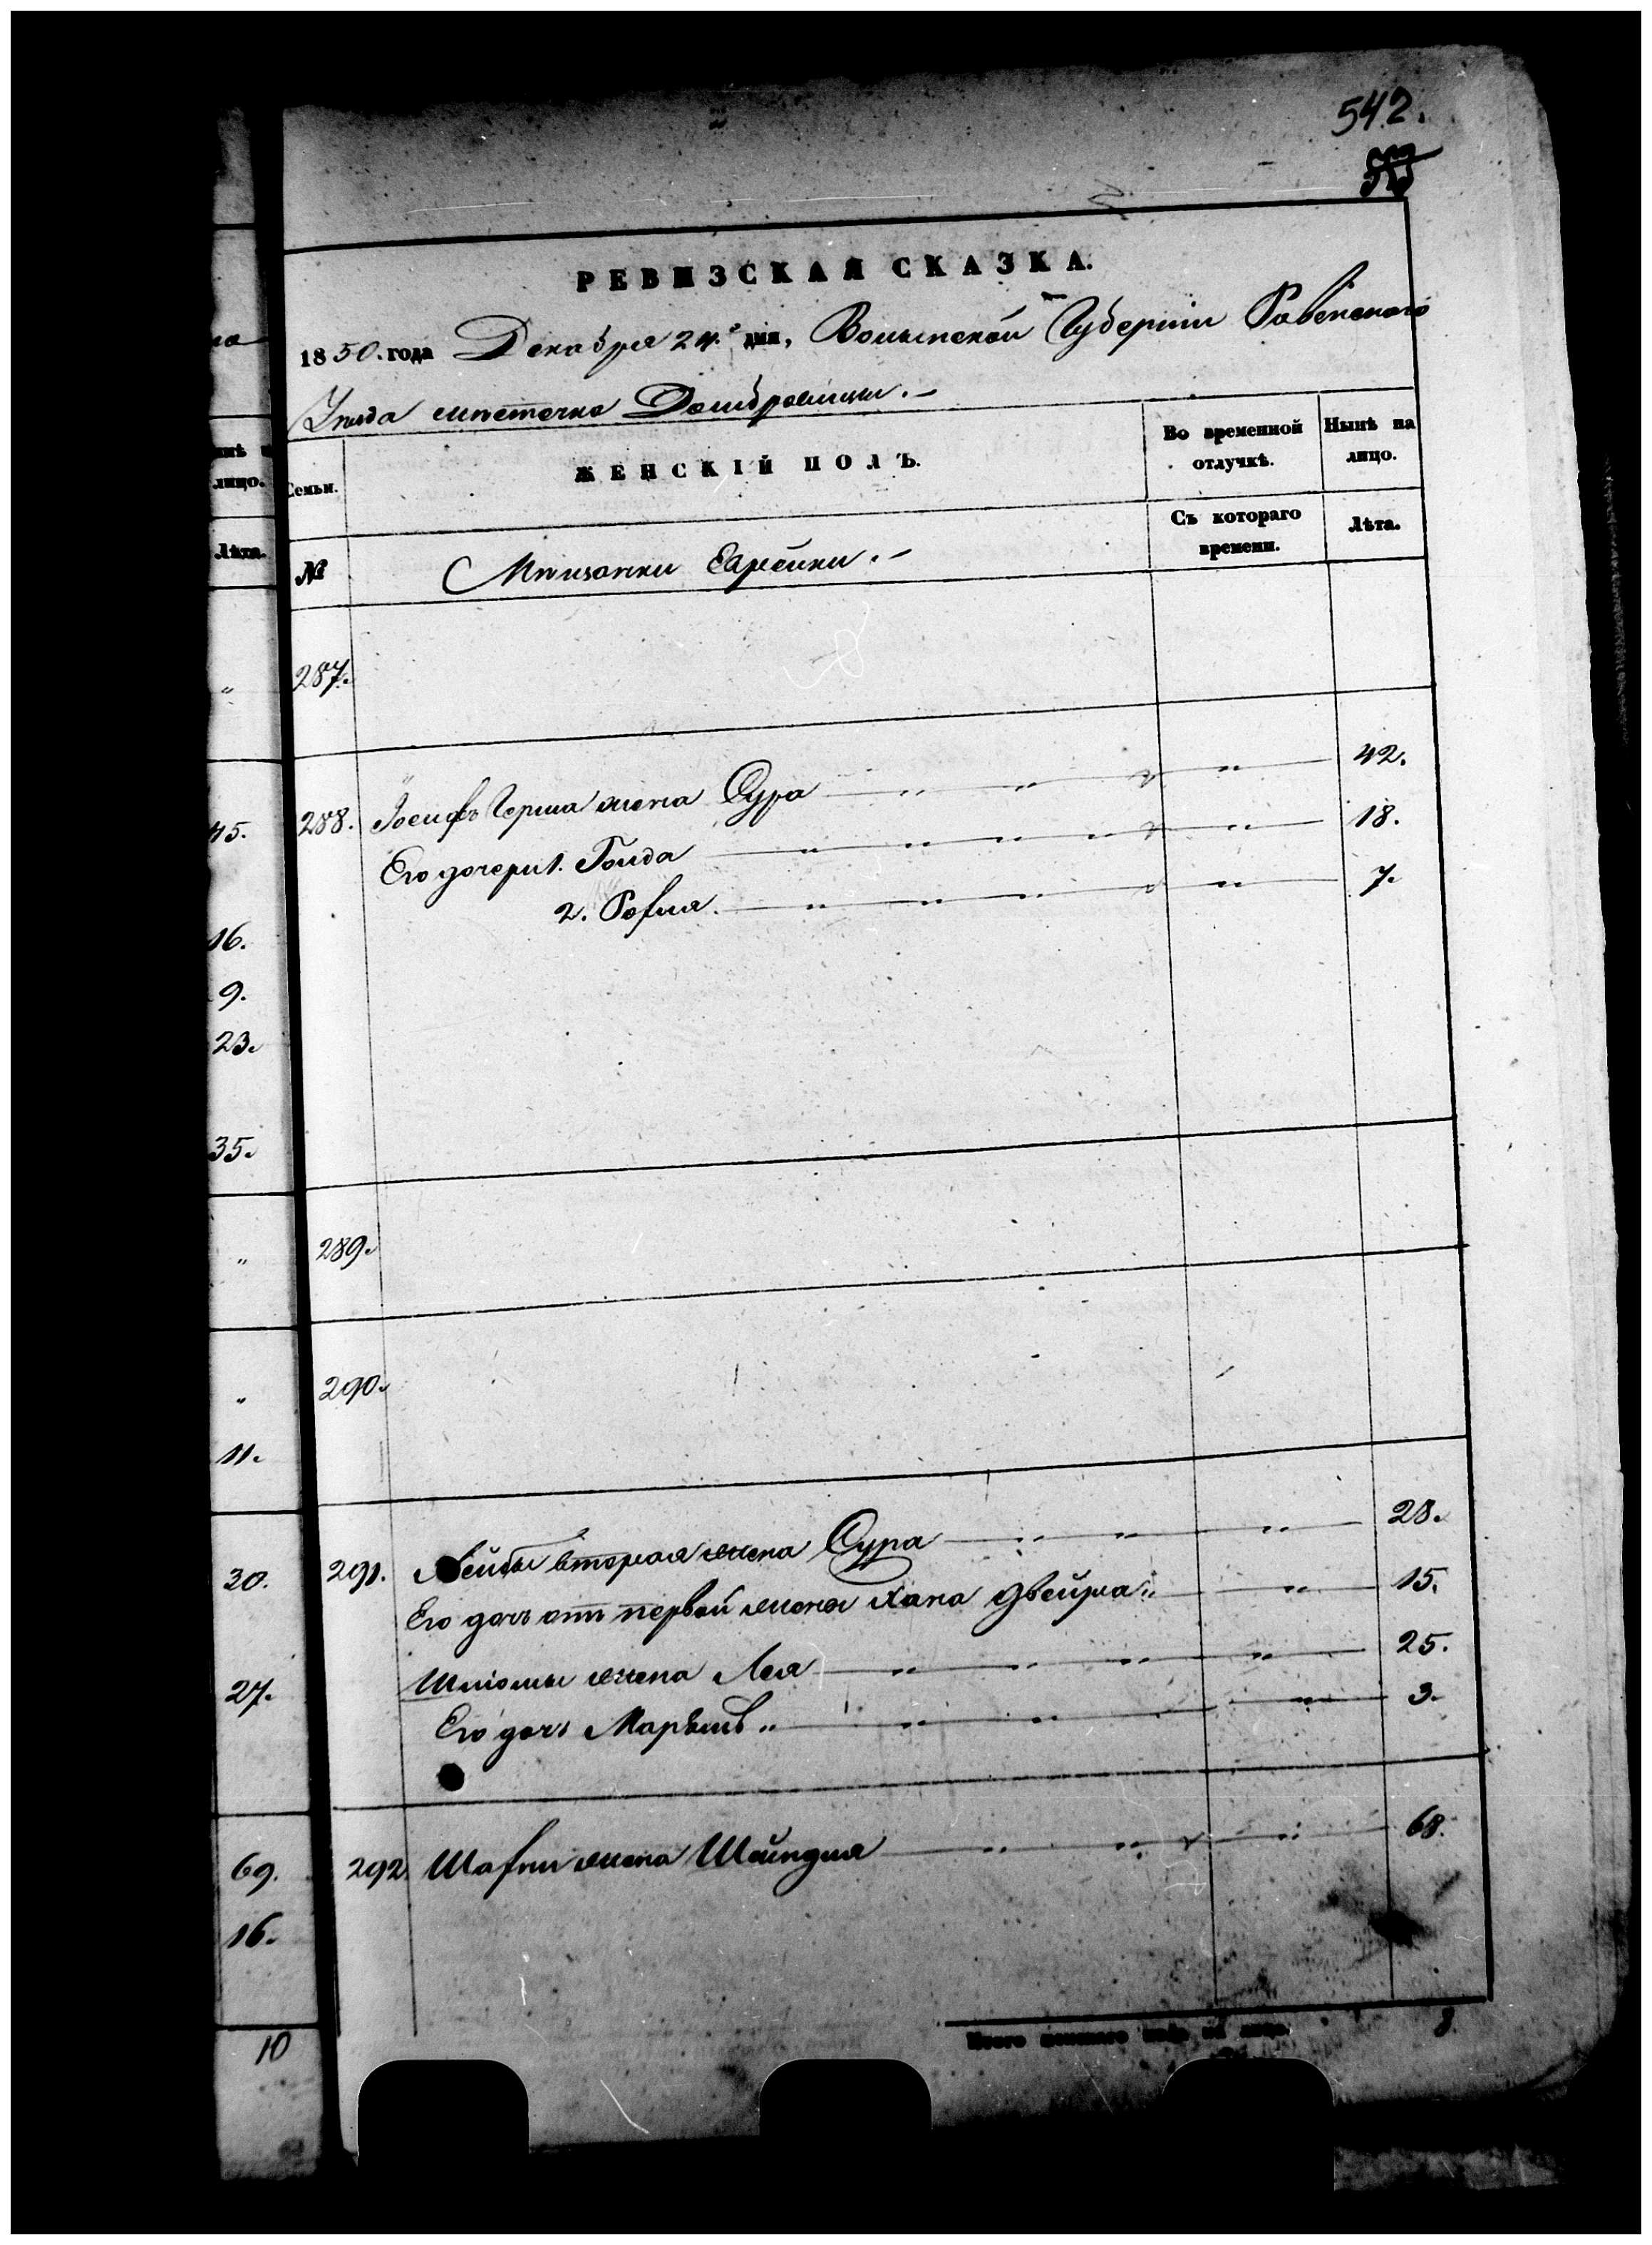 542.
РЕВИЗСКАЯ СКАЗКА.
1850. года Декабря 24.го дня, Волынской Губерніи Ровенского
Уѣзда мѣстечка Домбровицы.
Семьи.
ЖЕНСКІЙ ПОЛЪ.
Во временной отлучкѣ.
Нынѣ на лицо.
№
Мѣщанки Еврейки.
Съ котораго времени.
Лѣта.
287.
288. Іосифъ Герша жена Сура 42.
Его дочери 1. Голда 18.
2. Рохля. 7.
289.
290.
291. Лейбы вторая жена Сура 28.
Его дочь отъ первой жены Хана Двейра 15.
Шліомы жена Лея 25.
Его дочь Марьямъ 3.
292. жена Шейндля 68.
Итого женскаго пола на лицо. 8
лицо.
Лѣта.
45.
16.
9.
23.
35.
11.
30.
27.
69.
16.
10